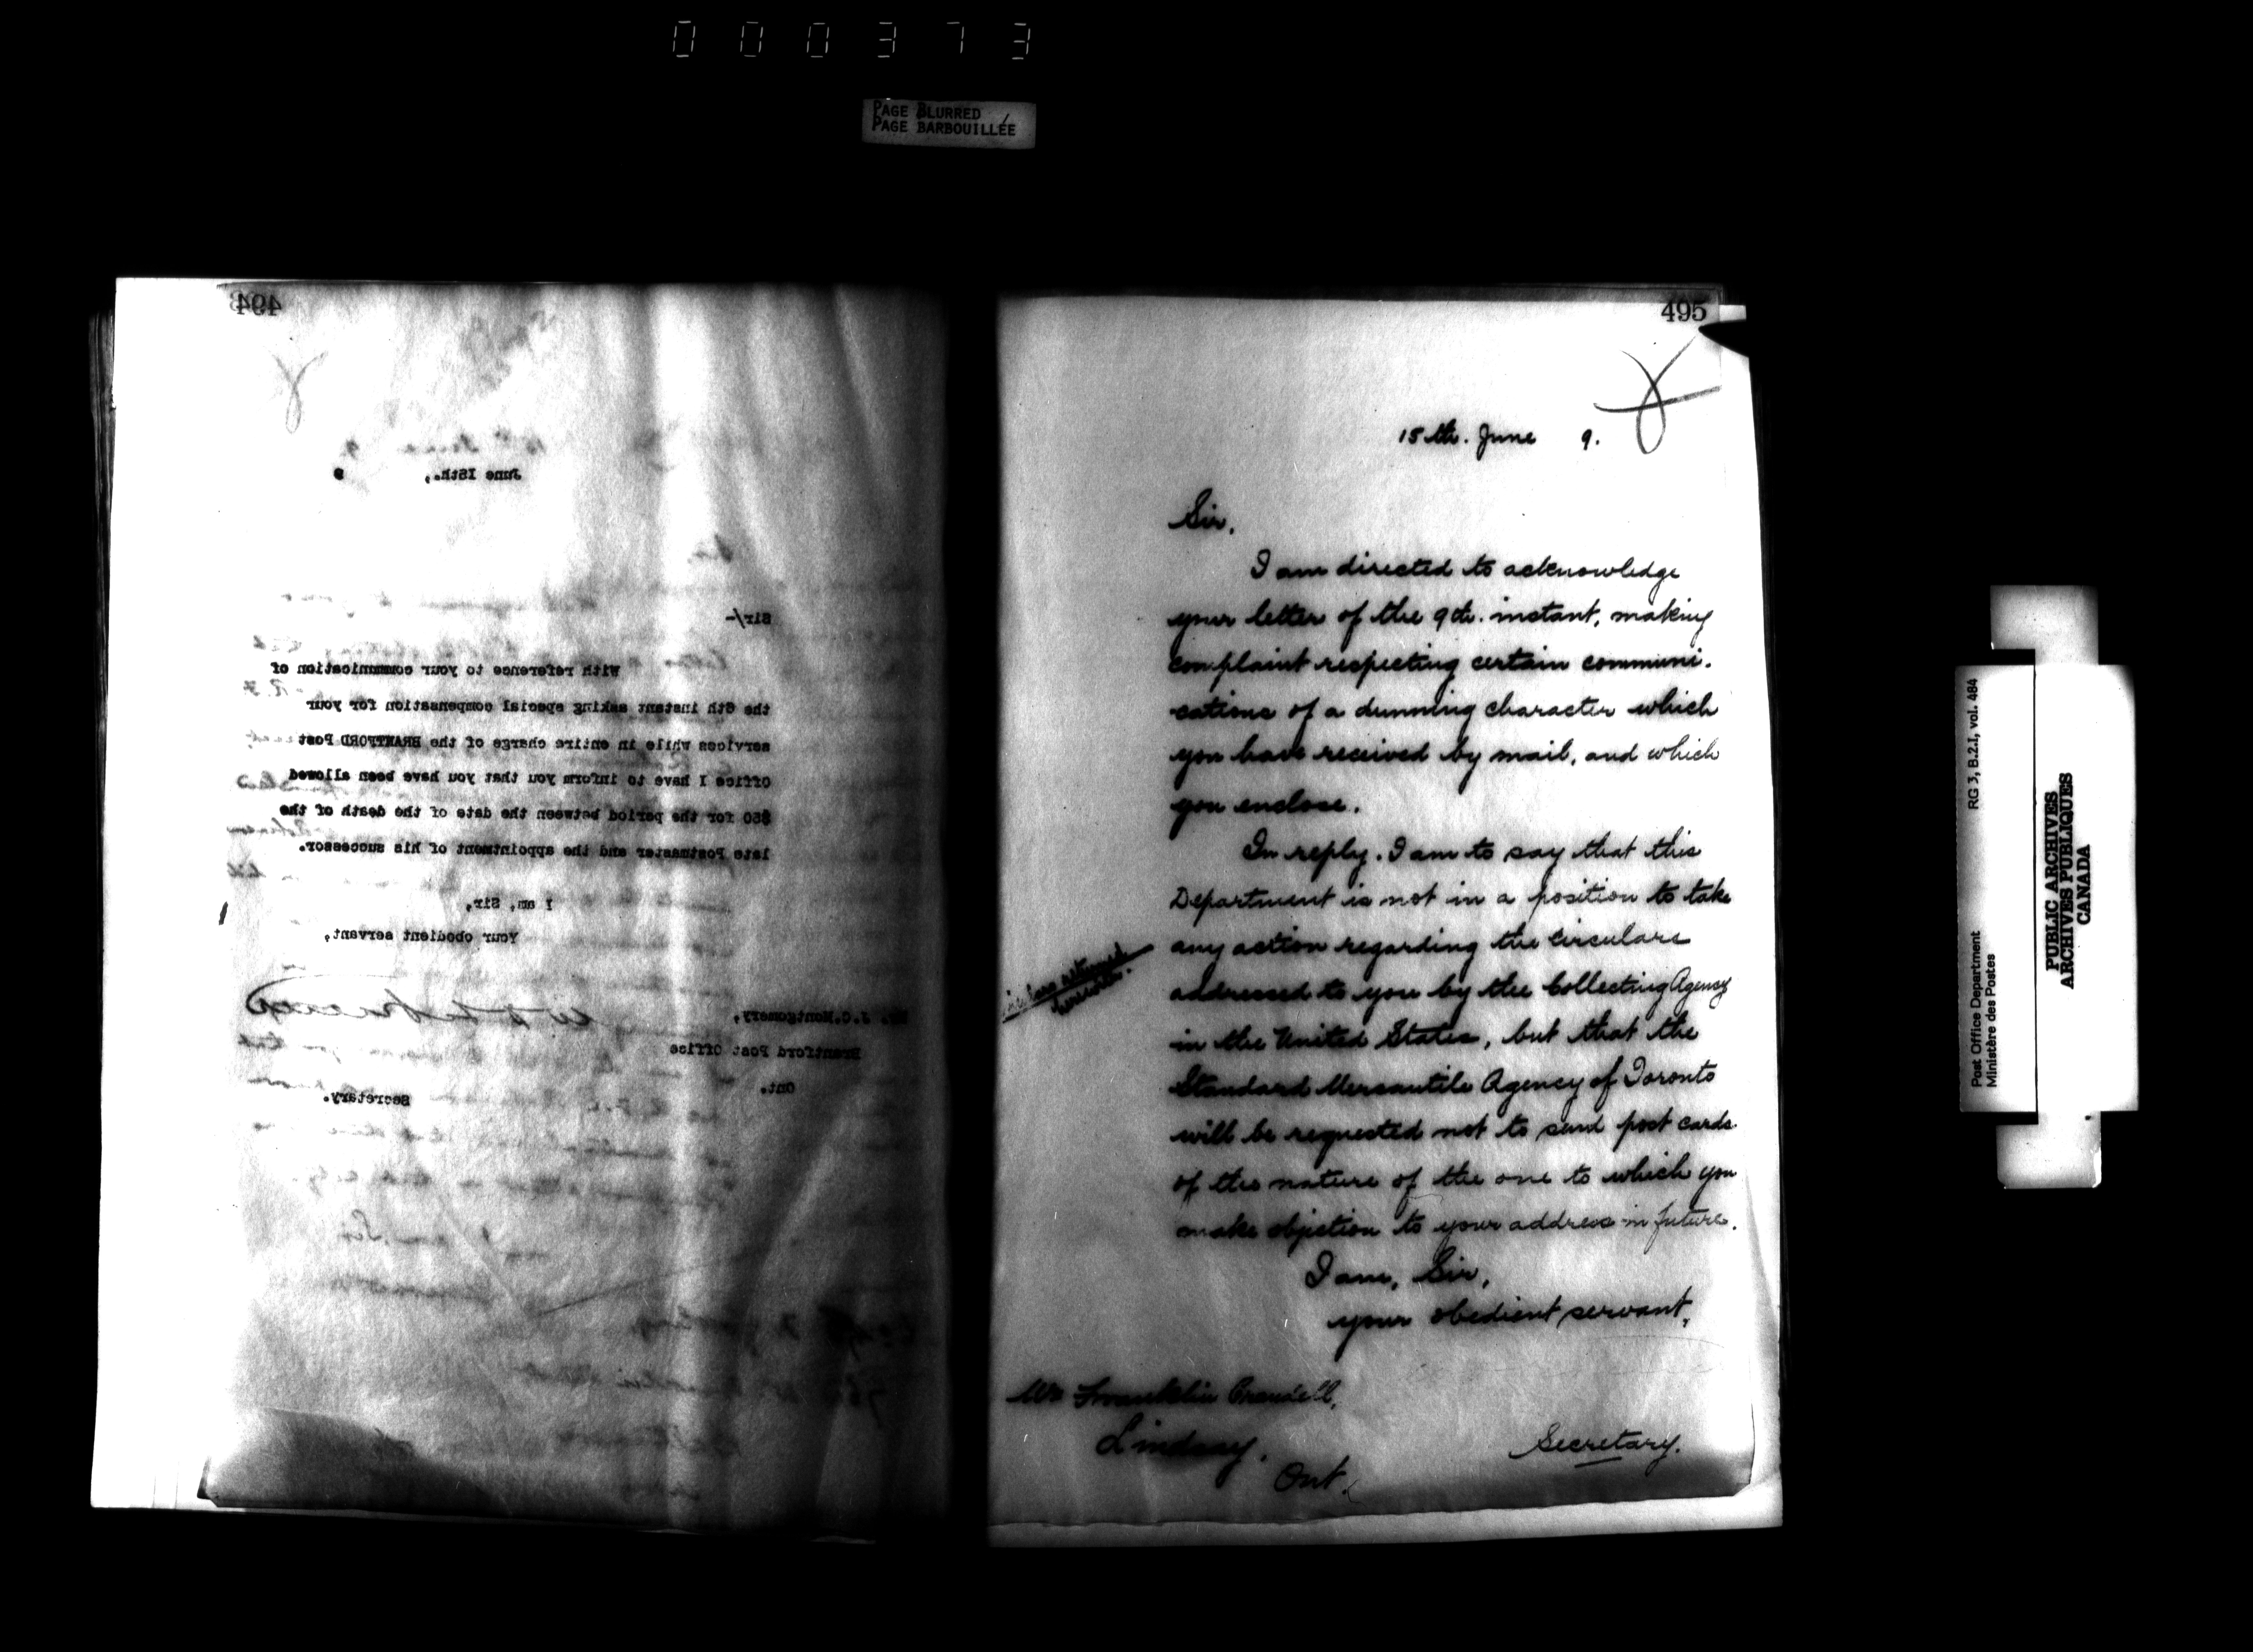 000373
PAGE BLURRED
PAGE BARBOUILLÉE
494
June 15th., 9
Sir/-
With reference to your communication of
the 6th instant asking special compensation for your
services while in entire charge of the BRANTFORD Post
Office I have to inform you that you have been allowed
$50 for the period between the date of the death of the
late Postmaster and the appointment of his successor.
I am, Sir,
Your obedient servant,
Mr. J.C.Montgomery,
Brantford Post Office
Ont.
Secretary.
495
15th. June 9.
Sir,
I am directed to acknowledge
your letter of the 9th. instant, making
complaint respecting certain communi-
cations of a dunning character which
you have received by mail, and which
you enclose.
In reply, I am to say that this
Department is not in a position to take
any action regarding the circulars
addressed to you by the Collecting Agency
in the United States, but that the
Standard Mercantile Agency of Toronto
will be requested not to send post cards
of the nature of the one to which you
make objection to your address in future.
I am, Sir,
your obedient servant,
Circulars returned
herewith.
Mr Franklin Crandell,
Lindsay.
Ont.
Secretary.
Post Office Department RG 3, B.2.I, vol. 484
Ministère des Postes
PUBLIC ARCHIVES
ARCHIVES PUBLIQUES
CANADA